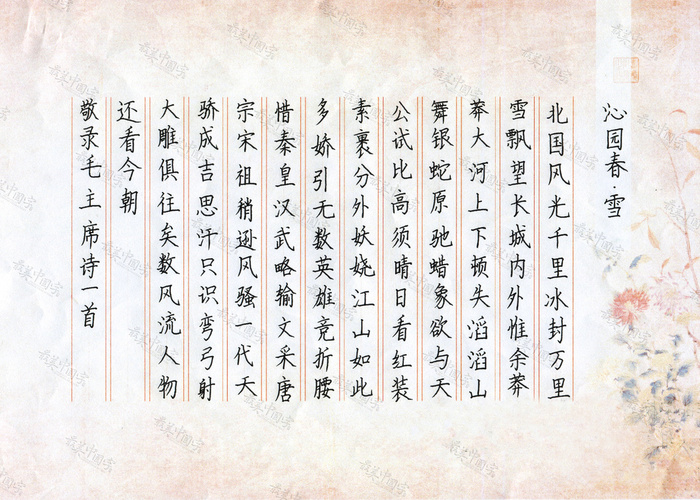 沁园春·雪
北国风光千里冰封万里
雪飘望长城内外惟余莽
莽大河上下顿失滔滔山
舞银蛇原驰蜡象欲与天
公试比高须晴日看红装
素裹分外妖娆江山如此
多娇引无数英雄竞折腰
惜秦皇汉武略输文采唐
宗宋祖稍逊风骚一代天
骄成吉思汗只识弯弓射
大雕俱往矣数风流人物
还看今朝
敬录毛主席诗一首
最美中国字